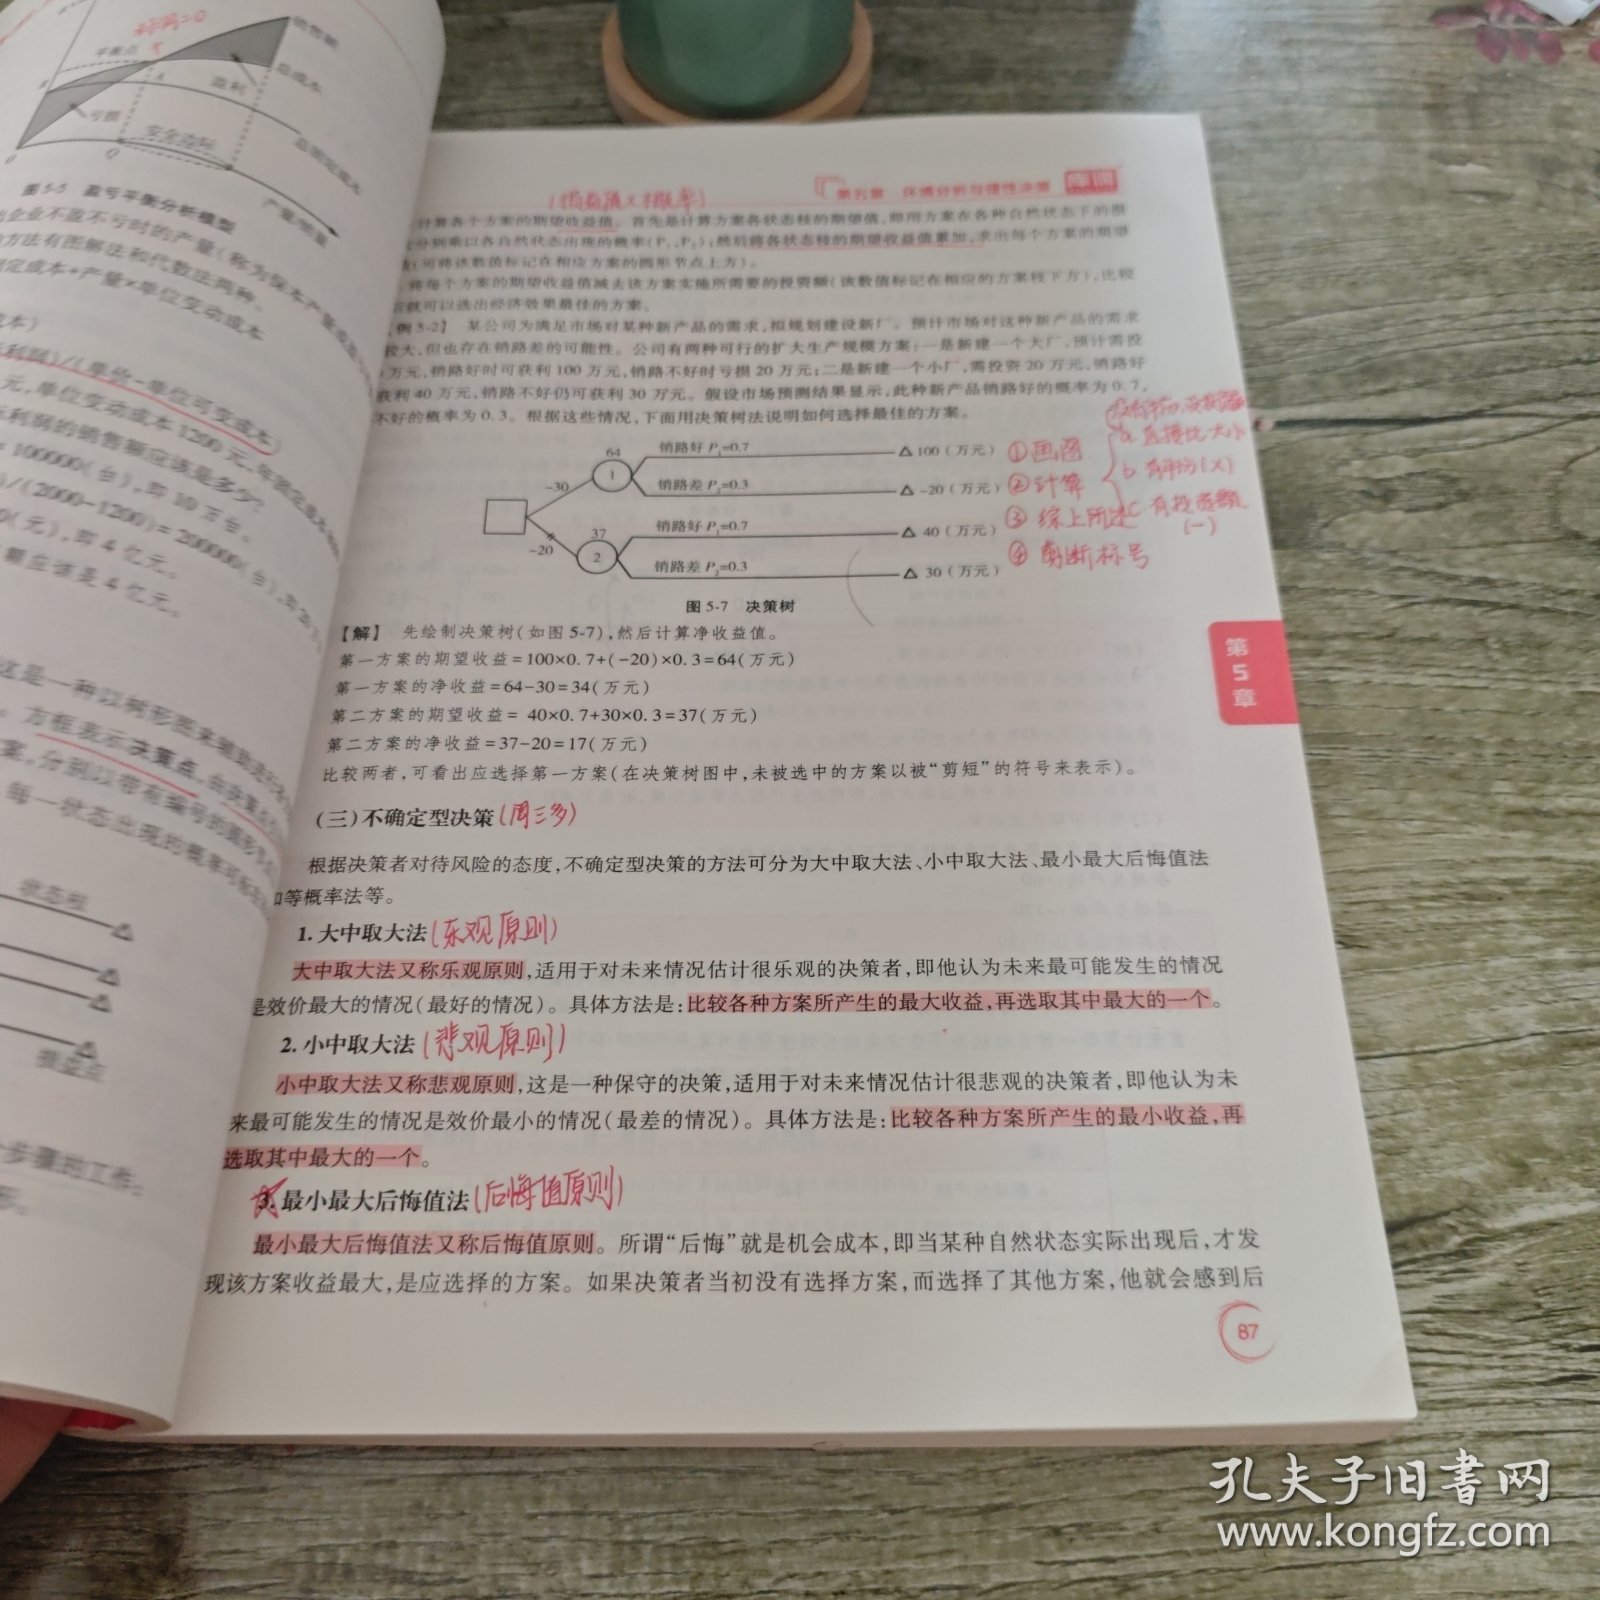 盈利
亏损
安全边际
总成本
产量/销量
图5-5 盈亏平衡分析模型
出企业不盈不亏时的产量(称为保本产量
的方法有图解法和代数法两种。
固定成本+产量×单位变动成本
元,单位变动成本1200元,年固定成本
利润的销售额应该是多少?
=100000(台),即10万台。
/(2000-1200)=200000(台)
0(元),即4亿元。
额应该是4亿元。
这是一种以树形图来辅助
方框表示决策点,由决策点
案,分别以带有编号的圆形节
每一状态出现的概率可标
状态枝
损益点
个步骤的工作:
第五章 环境分析与理性决策
(损益值×概率)
计算各个方案的期望收益值。首先是计算方案各状态枝的期望值,即用方案在各种自然状态下的损
分别乘以各自然状态出现的概率(P₁、P₂);然后将各状态枝的期望收益值累加,求出每个方案的期望
值(可将该数值标记在相应方案的圆形节点上方)。
将每个方案的期望收益值减去该方案实施所需要的投资额(该数值标记在相应的方案枝下方),比较
后就可以选出经济效果最佳的方案。
例5-2】 某公司为满足市场对某种新产品的需求,拟规划建设新厂。预计市场对这种新产品的需求
较大,但也存在销路差的可能性。公司有两种可行的扩大生产规模方案:一是新建一个大厂,预计需投
万元,销路好时可获利100万元,销路不好时亏损20万元;二是新建一个小厂,需投资20万元,销路好
获利40万元,销路不好仍可获利30万元。假设市场预测结果显示,此种新产品销路好的概率为0.7,
不好的概率为0.3。根据这些情况,下面用决策树法说明如何选择最佳的方案。
64 销路好 P₁=0.7 100(万元)
-30 1 销路差 P₂=0.3 -20(万元)
37 销路好 P₁=0.7 40(万元)
-20 2 销路差 P₂=0.3 30(万元)
①画图
②计算
③综上所述
④剪断标号
a.直接比大小
b.有年份(×)
c.有投资额
(-)
图5-7 决策树
【解】 先绘制决策树(如图5-7),然后计算净收益值。
第一方案的期望收益=100×0.7+(-20)×0.3=64(万元)
第一方案的净收益=64-30=34(万元)
第二方案的期望收益= 40×0.7+30×0.3=37(万元)
第二方案的净收益=37-20=17(万元)
比较两者,可看出应选择第一方案(在决策树图中,未被选中的方案以被“剪短”的符号来表示)。
(三)不确定型决策(周三多)
根据决策者对待风险的态度,不确定型决策的方法可分为大中取大法、小中取大法、最小最大后悔值法
和等概率法等。
1.大中取大法(乐观原则)
大中取大法又称乐观原则,适用于对未来情况估计很乐观的决策者,即他认为未来最可能发生的情况
是效价最大的情况(最好的情况)。具体方法是:比较各种方案所产生的最大收益,再选取其中最大的一个。
2.小中取大法(悲观原则)
小中取大法又称悲观原则,这是一种保守的决策,适用于对未来情况估计很悲观的决策者,即他认为未
来最可能发生的情况是效价最小的情况(最差的情况)。具体方法是:比较各种方案所产生的最小收益,再
选取其中最大的一个。
3.最小最大后悔值法(后悔值原则)
最小最大后悔值法又称后悔值原则。所谓“后悔”就是机会成本,即当某种自然状态实际出现后,才发
现该方案收益最大,是应选择的方案。如果决策者当初没有选择方案,而选择了其他方案,他就会感到后
87
第5章
孔夫子旧书网
www.kongfz.com